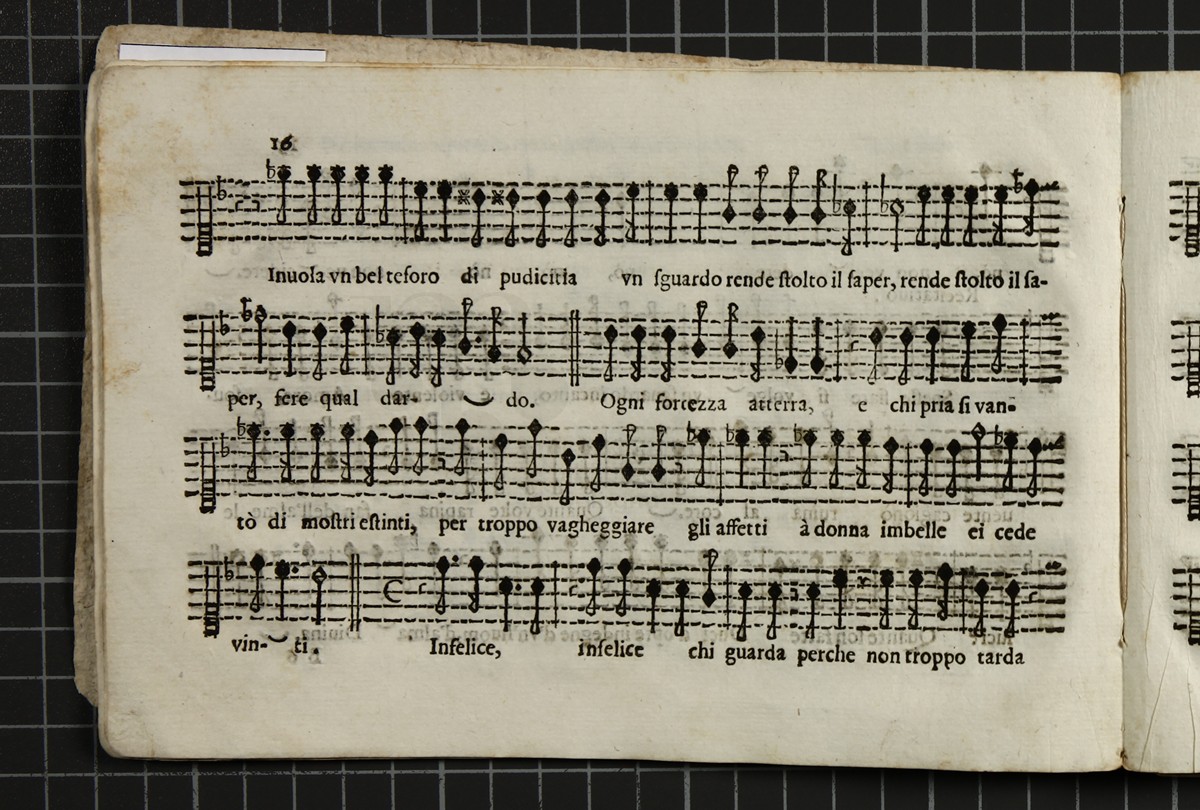 16
Inuola vn bel tesoro di pudicitia vn sguardo rende stolto il saper, rende stolto il sa-
per, fere qual dar- do. Ogni fortezza atterra, e chi pria si van-
tò di mostri estinti, per troppo vagheggiare gli affetti à donna imbelle ei cede
vin- ti. Infelice, infelice chi guarda perche non troppo tarda